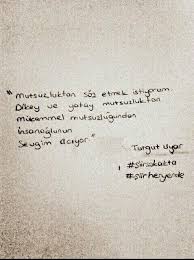 "Mutsuzluktan söz etmek istiyorum
Dikey ve yatay mutsuzluktan
Mükemmel mutsuzluğundan
İnsanoğlunun
Sevgim acıyor"
Turgut Uyar
#Şiirsokakta
#şiirheryerde